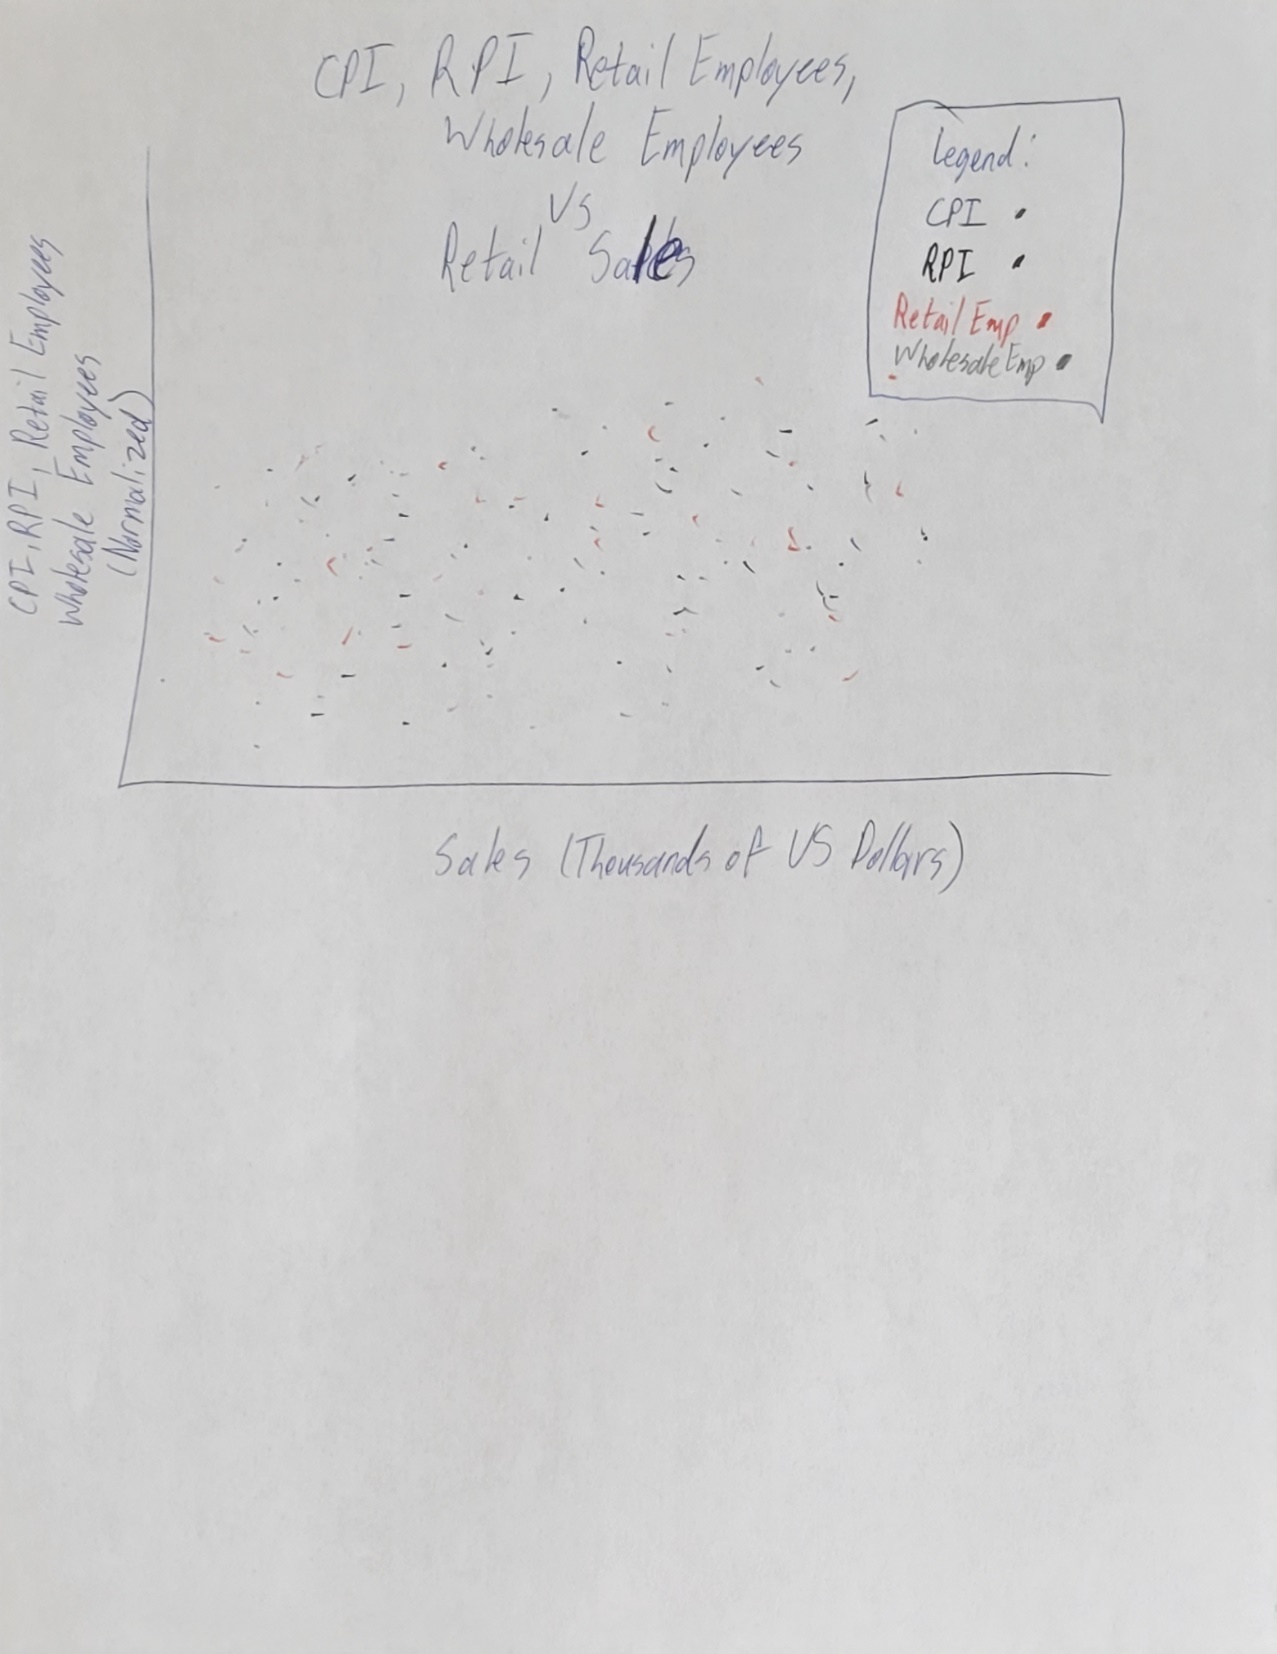 CPI, RPI, Retail Employees,
Wholesale Employees
VS
Retail Sales
Legend:
CPI
RPI
Retail Emp
Wholesale Emp
CPI, RPI, Retail Employees
Wholesale Employees
(Normalized)
Sales (Thousands of US Dollars)